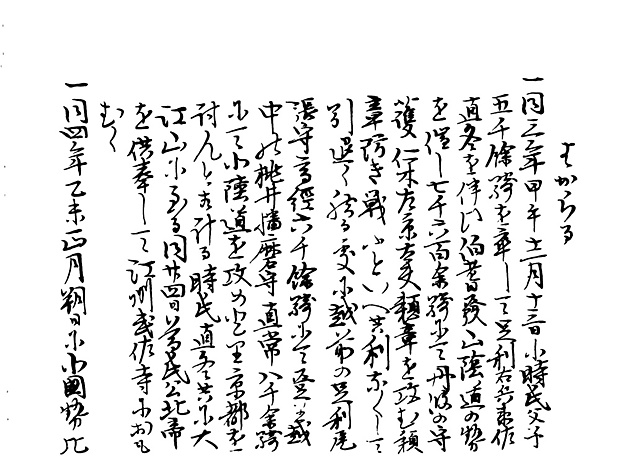 はからる
一同三年甲午十二月十三日小時氏父子
五千餘騎を率して足利右兵衛佐
直冬を伴ひ伯耆發山陰道の勢
を催し七千六百余騎にて丹波の守
護仁木左京大夫頼章を攻む頼
章防き戦ふといへ共利なくして
引退く然る處に越前の足利尾
張守高經六千餘騎にて登る越
中の桃井播磨守直常八千余騎
にて小陸道を攻め登り京都を
討んと示し計る時氏直冬共に大
江山に至る同廿四日尊氏公北帝
を供奉して江州武佐寺におも
むく
一同四年乙未正月朔日に小國勢ヒ